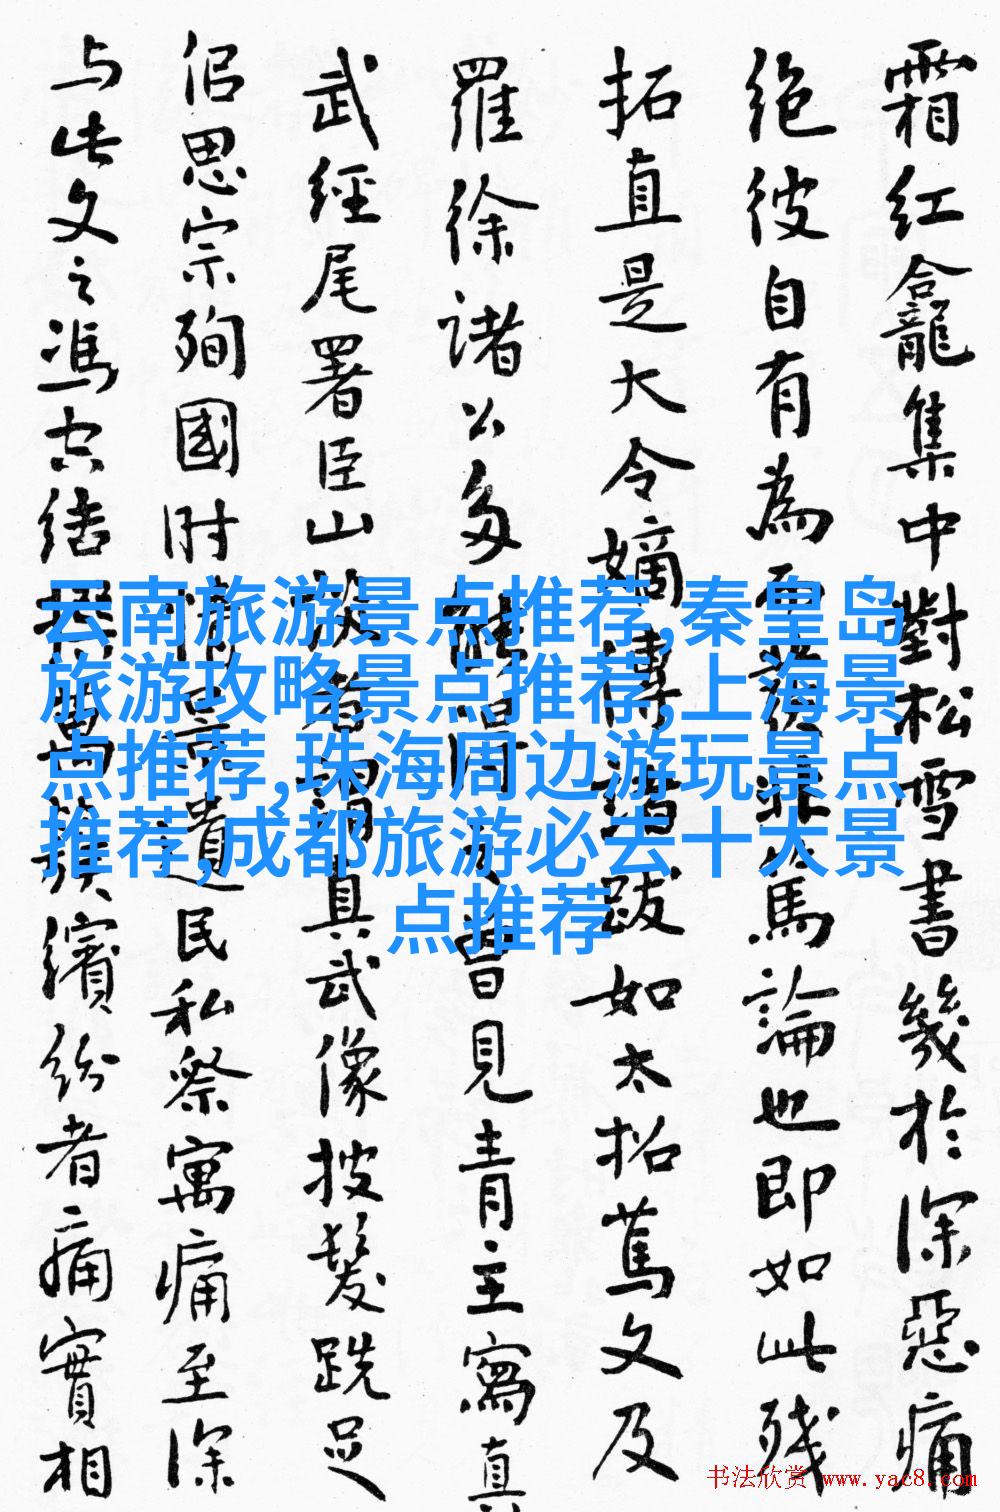 霜红龕集中對松雪書幾於深惡痛
绝彼自有為而發非篤論也即如此残
拓直是大令嫡傳諸跋如太拓篤文及
羅徐諸公多能得曾見青主寫真
武經尾署臣山真武像披髮跣足
侣思宗殉國时情景遺民私祭寓痛至深
与此文之馮空结撰萬族繽紛者痛實相
云南旅游景点推荐,秦皇岛
旅游攻略景点推荐,上海景
点推荐,珠海周边游玩景点
推荐,成都旅游必去十大景
点推荐
书法欣赏 www.yac8.com